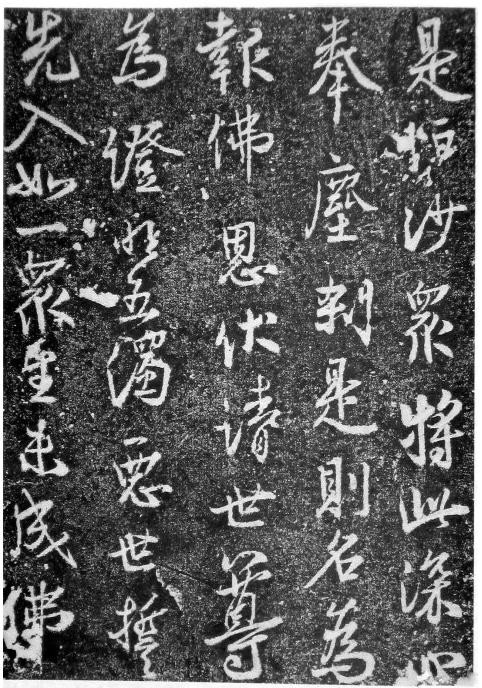 是恒沙衆將此深心
奉塵刹是則名為
報佛恩伏請世尊
為證明五濁惡世誓
先入如一衆生未成佛